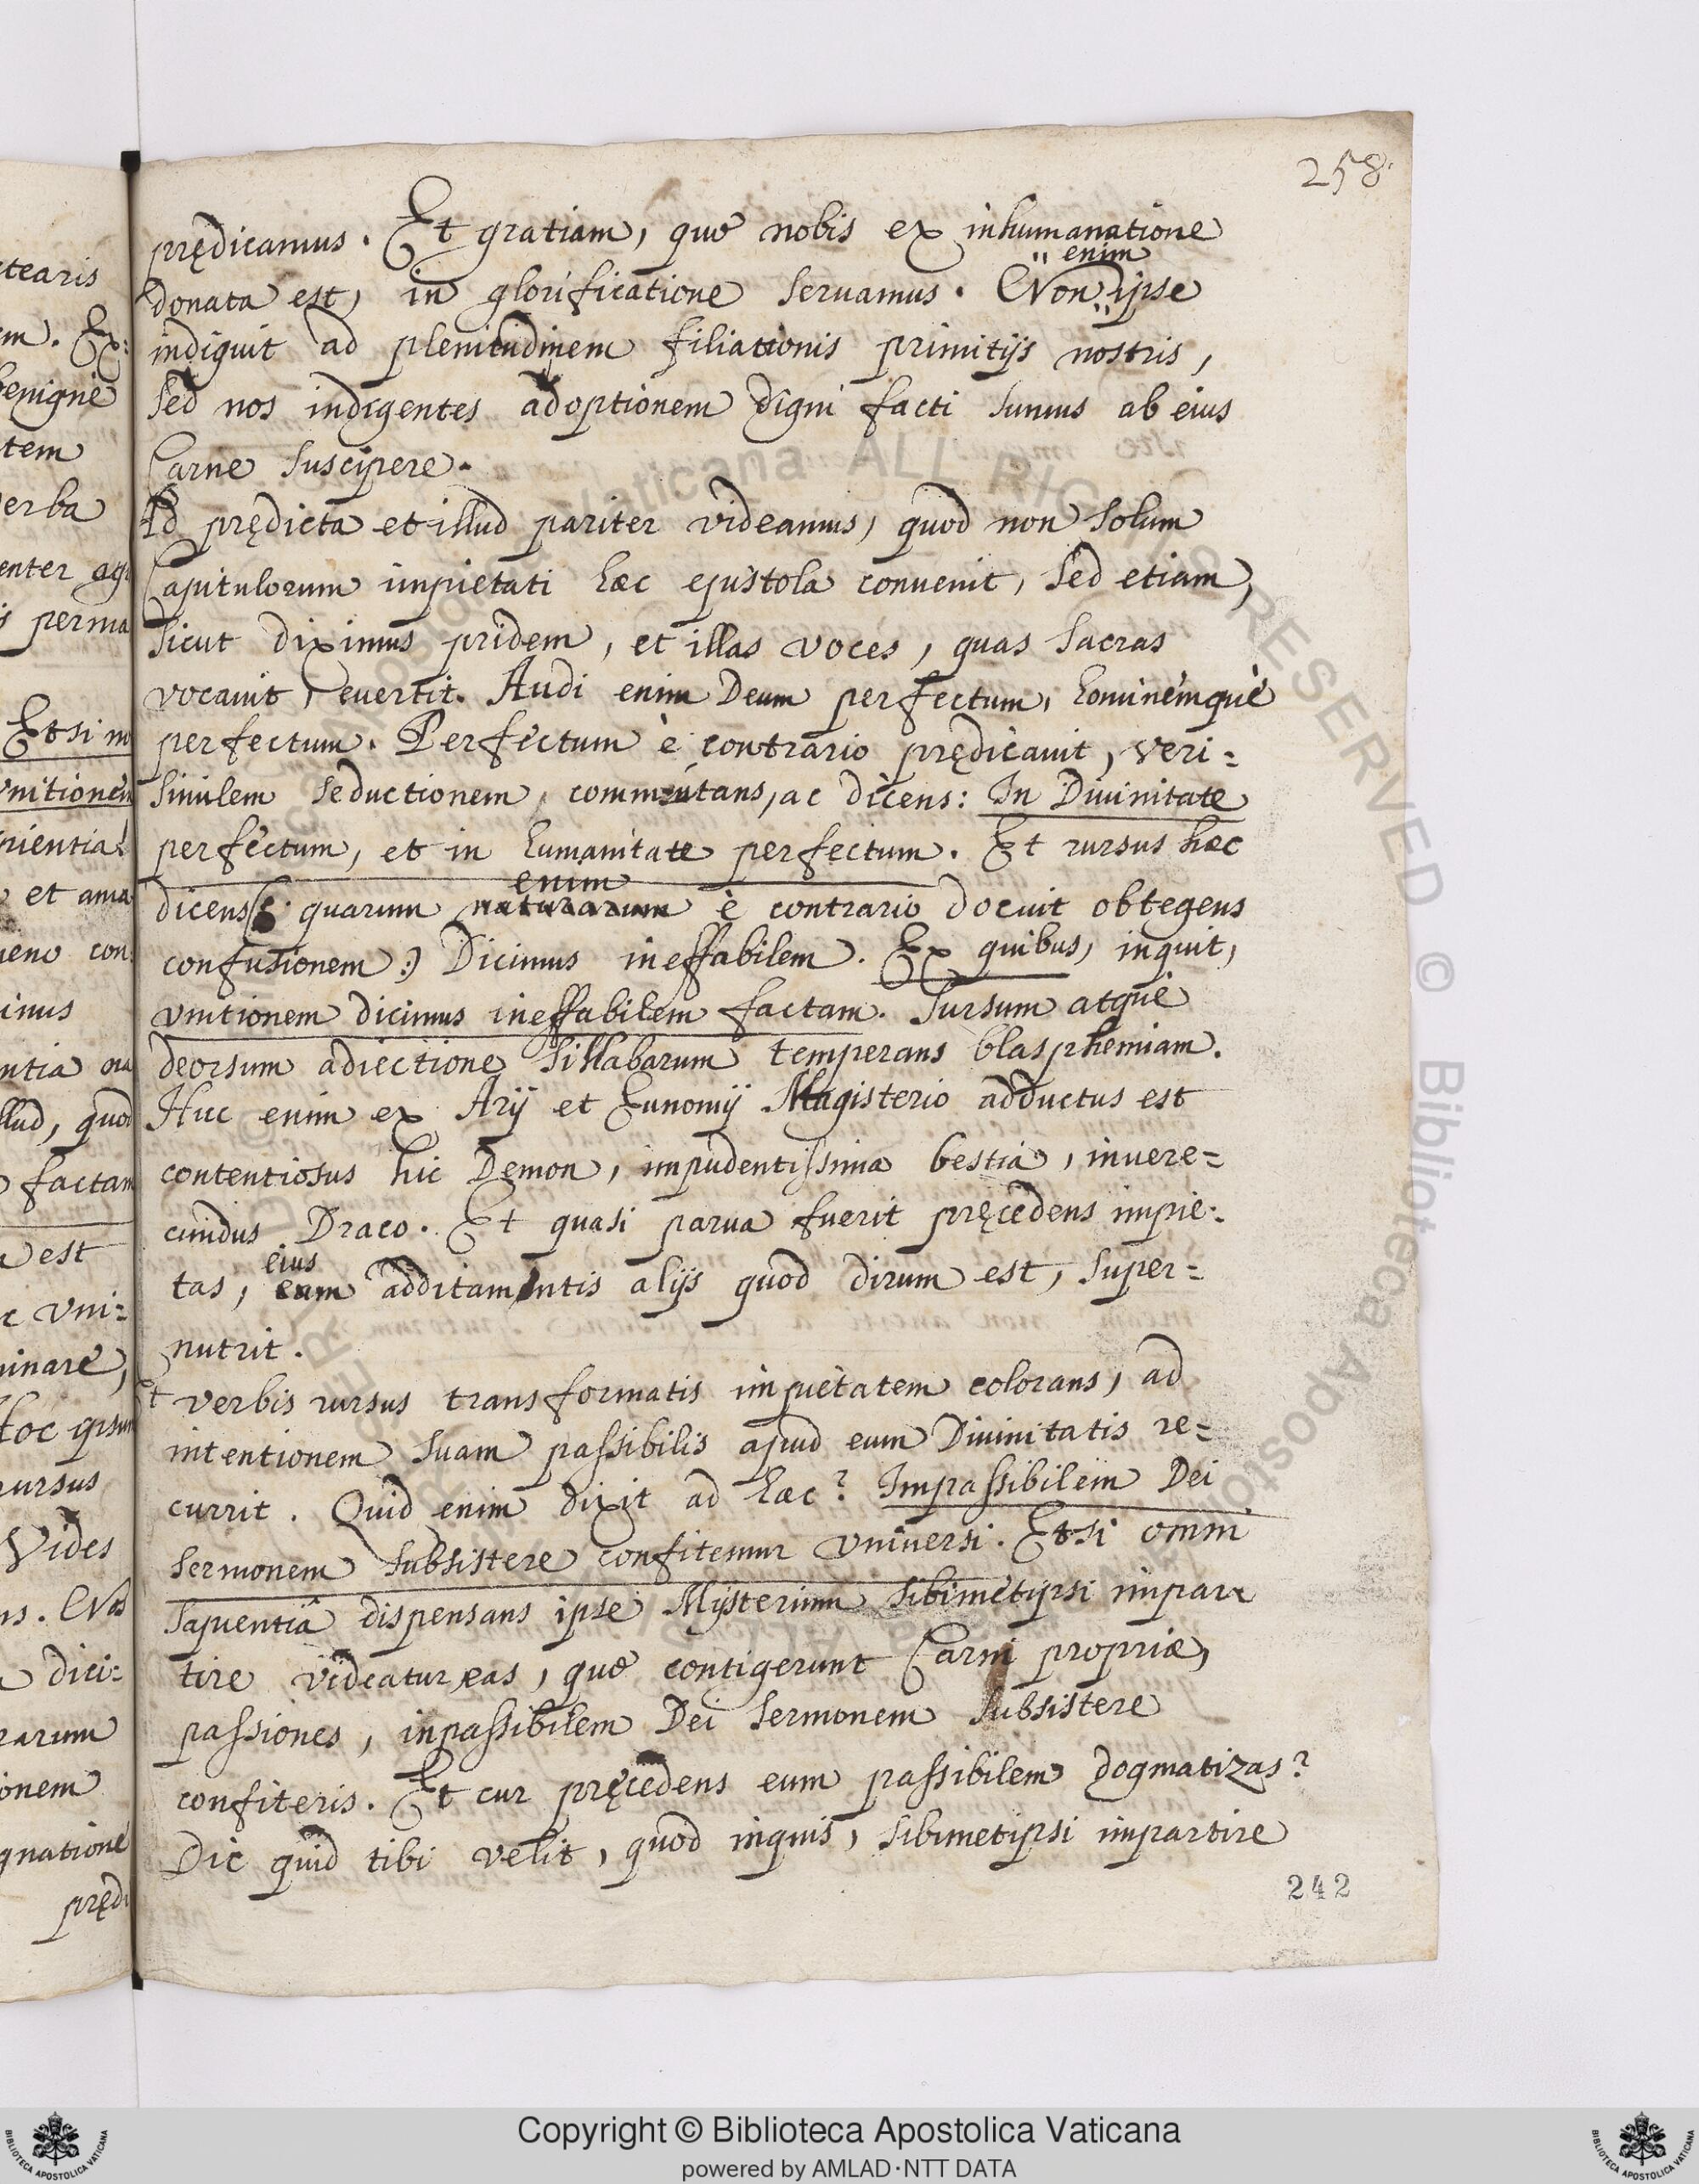 258.
prędicamus. Et gratiam, quę nobis ex inhumanatione
donata est, in glorificatione seruamus. Non enim ipse
indiguit ad plenitudinem filiationis primitijs nostris,
sed nos indigentes adoptionem digni facti sumus ab eius
Carne suscipere.
Ad prędicta et illud pariter videamus, quod non solum
Capitulorum impietati hæc epistola conuenit, sed etiam,
sicut diximus pridem, et illas voces, quas sacras
vocauit, euertit. Audi enim Deum perfectum, hominemque
perfectum. Perfectum è contrario prędicauit, veri=
similem seductionem, commutans, ac dicens: In Diuinitate
perfectum, et in humanitate perfectum. Et rursus hæc
enim
dicens (: quarum naturarum è contrario docuit obtegens
confusionem :) Dicimus ineffabilem. Ex quibus, inquit,
vnitionem dicimus ineffabilem factam. Sursum atque
deorsum adiectione sillabarum temperans blasphemiam.
Huc enim ex Arij et Eunomij Magisterio adductus est
contentiosus hic Dęmon, impudentissima bestia, inuere=
cundus Draco. Et quasi parua fuerit pręcedens impie=
eius
tas, eam additamentis alijs quod dirum est, super=
nutrit.
Et verbis rursus transformatis impietatem colorans, ad
intentionem suam passibilis apud eum Diuinitatis re=
currit. Quid enim dixit ad hæc? Impassibilem Dei
sermonem subsistere confitemur vniuersi. Etsi omni
sapientiâ dispensans ipse Mysterium sibimetipsi impar
tire videatur eas, quę contigerunt Carni propriæ,
passiones, inpassibilem Dei sermonem subsistere
confiteris. Et cur pręcedens eum passibilem dogmatizas?
Dic quid tibi velit, quod inquis, sibimetipsi impartire
242
Copyright © Biblioteca Apostolica Vaticana
powered by AMLAD·NTT DATA